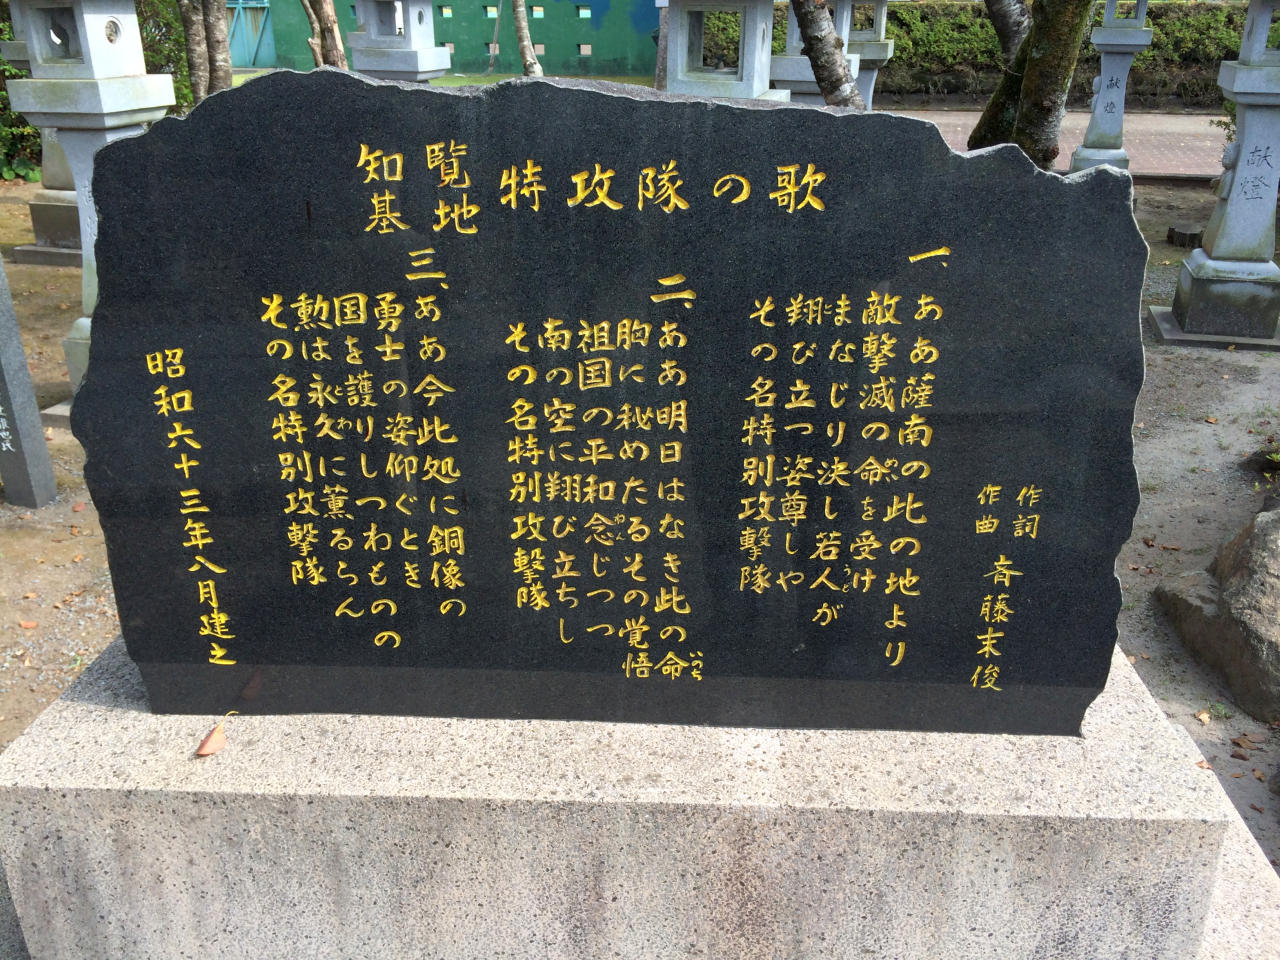 知覧
基地
特攻隊の歌
作詞
作曲 斉藤末俊
一、ああ薩南の此の地より
敵撃滅の命を受け
まなじり決し若人が
翔び立つ姿尊しや
その名特別攻撃隊
二、ああ明日はなき此の命
胸に秘めたるその覚悟
祖国の平和念じつつ
南の空に翔び立ちし
その名特別攻撃隊
三、ああ今此処に銅像の
勇士の姿仰ぐとき
国を護りしつわものの
勲は永久に薫るらん
その名特別攻撃隊
昭和六十三年八月建之
献燈
献燈